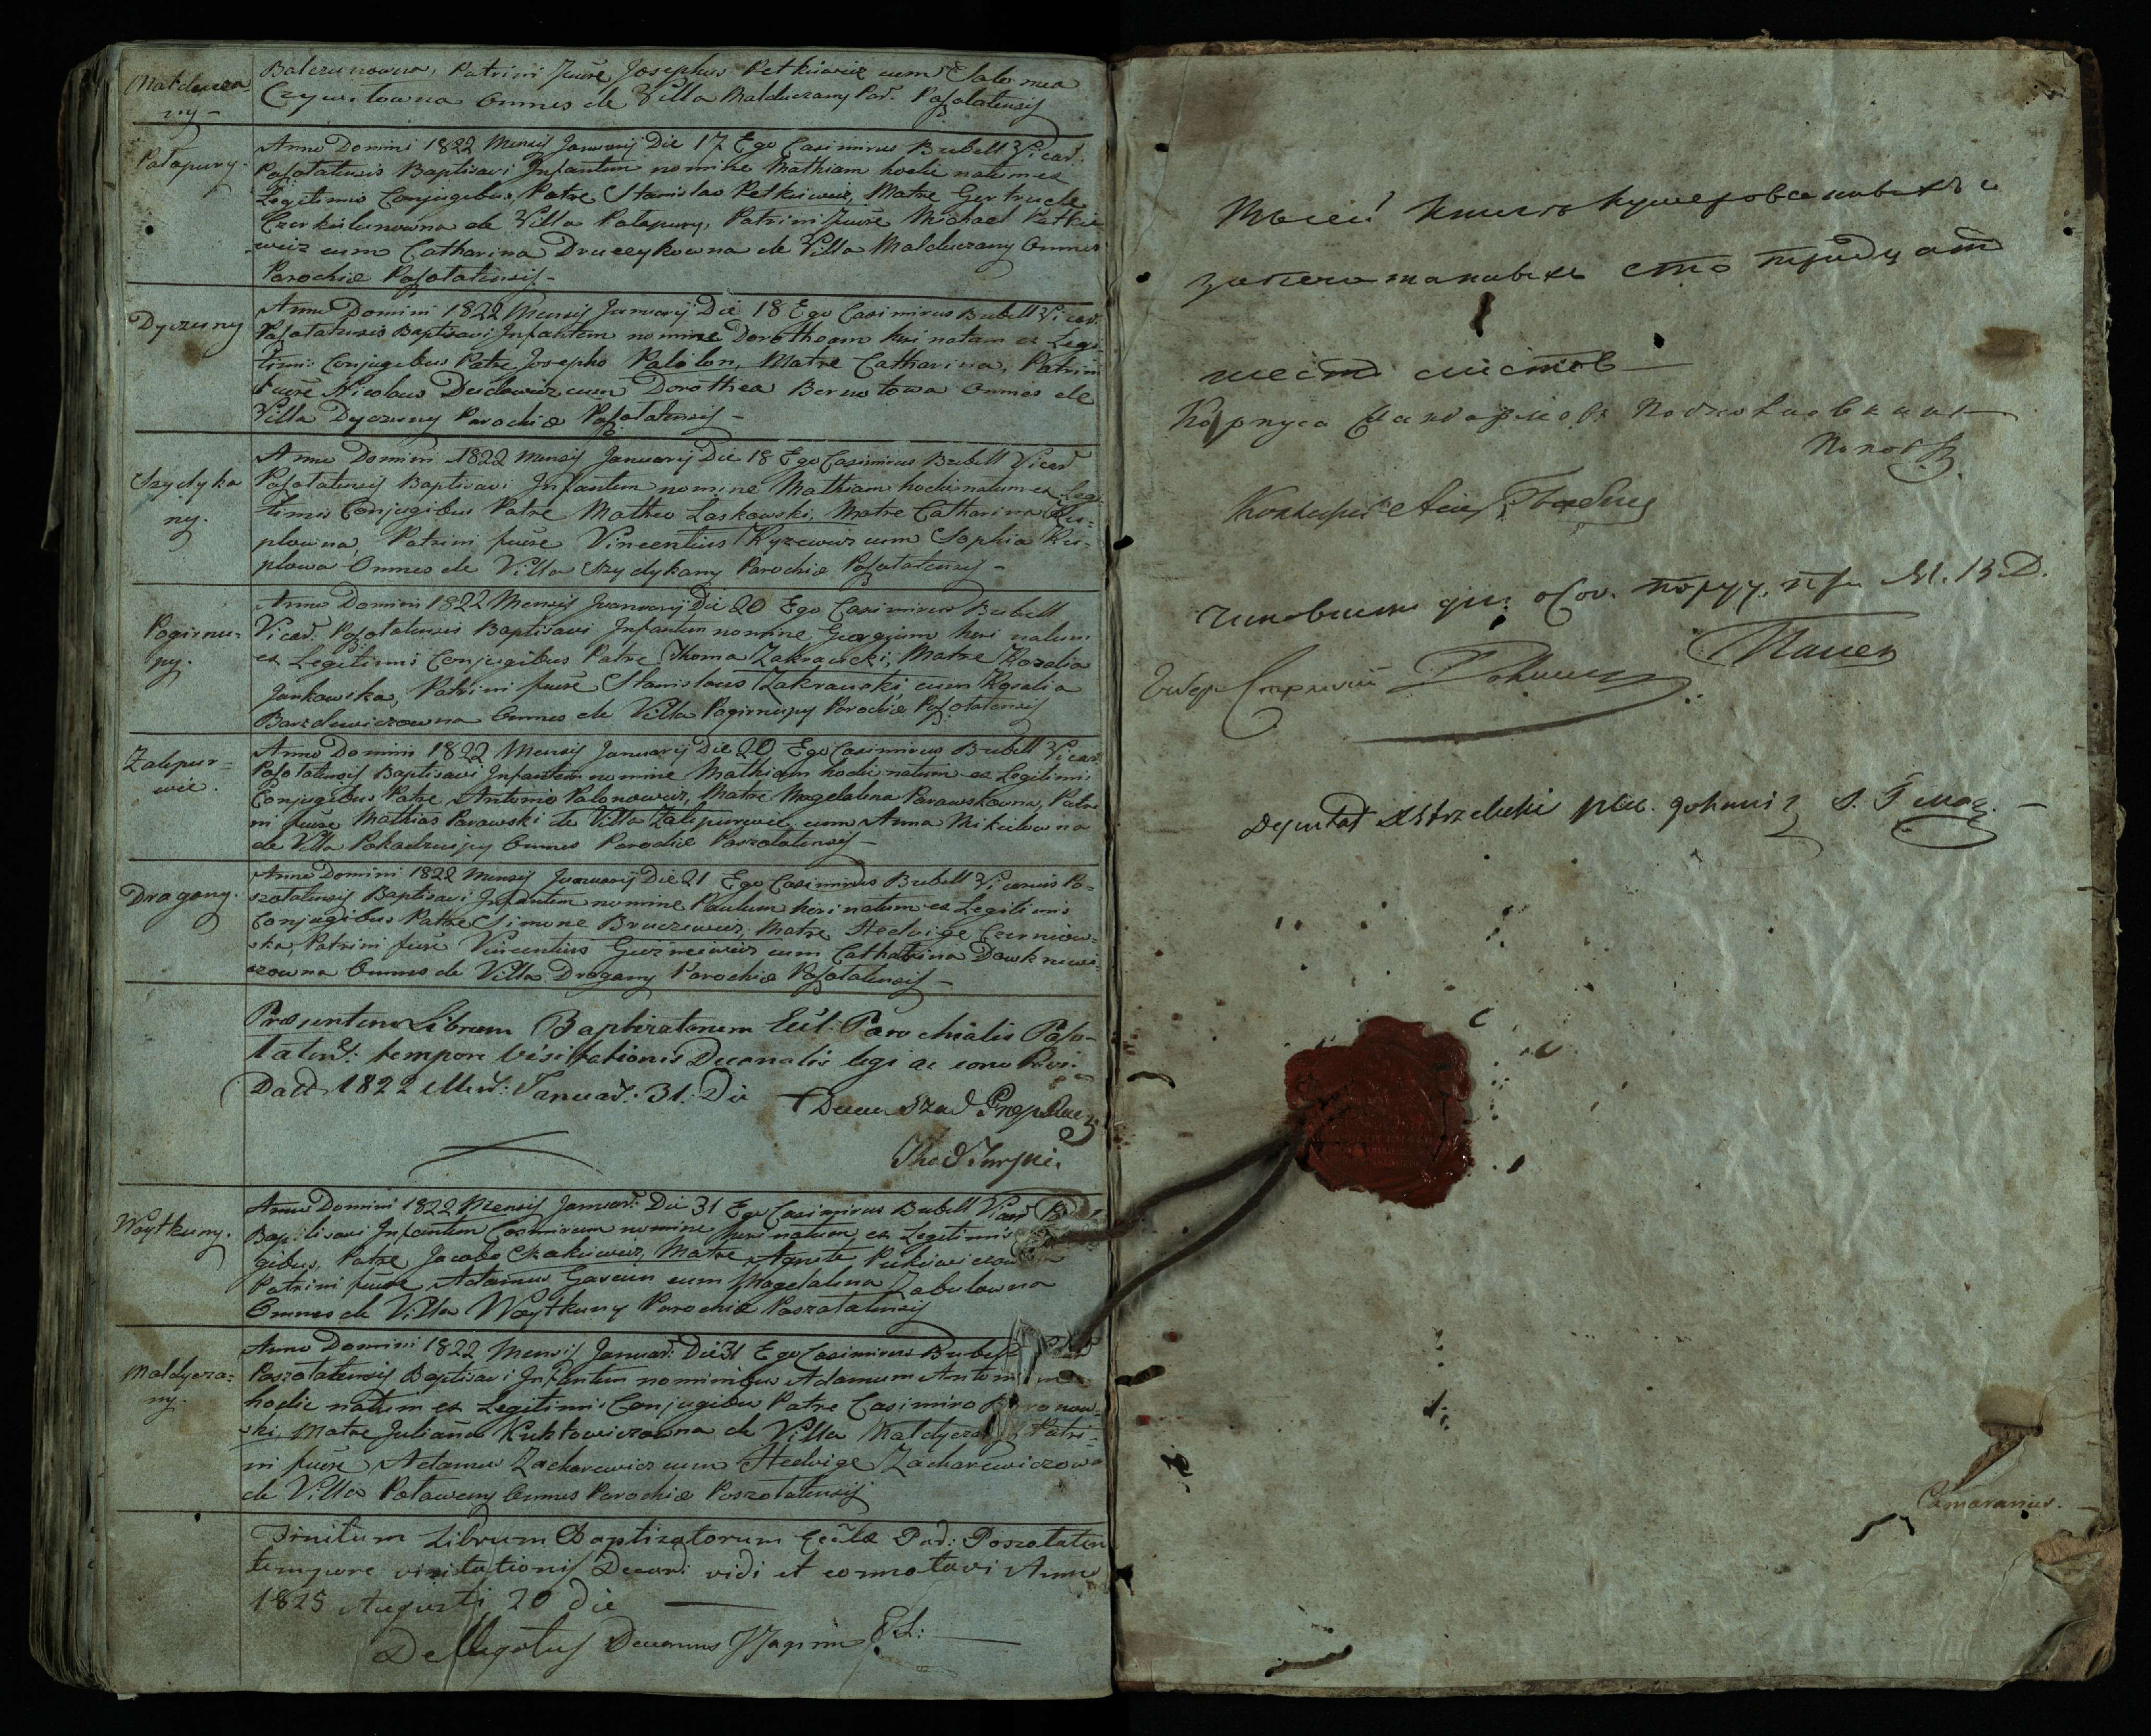 Malducza
ny -
Balczunowna, Patrini fuere Josephus Petkiewicz cum Salomea
Czywitowna Omnes de Villa Malduczany Par. Poszolatensis
Patapury.
Anno Domini 1822 Mensis Januarij Die 17 Ego Casimirus Bubell Vicar.
Poszolatensis Baptisavi Infantem nomine Mathiam hodie natum ex
Legitimis Conjugibus, Patre Stanislao Petkiewicz, Matre Gertrude
de Villa Patapury, Patrini fuere Michael Petkie
wicz cum Catharina Druceykowna de Villa Malduczany Omnes
Parochiæ Poszolatensis -
Dyczuny
Anno Domini 1822 Mensis Januarij Die 18 Ego Casimirus Bubell Vicar.
Poszolatensis Baptisavi Infantem nomine Dorotheam heri natam ex Legi-
timis Conjugibus Patre Josepho Palilon, Matre Catharina, Patrini
fuere Nicolaus Dudowicz cum Dorothea Bernotowa Omnes de
Villa Dyczuny Parochiæ Poszolatensis -
Szydyka
ny.
Anno Domini 1822 Mensis Januarij Die 18 Ego Casimirus Bubell Vicar
Poszolatensis Baptisavi Infantem nomine Mathiam hodie natum ex Legi-
timis Conjugibus Patre Matheo Laskowski, Matre Catharina Ru-
plowna, Patrini fuere Vincentius Kyzewicz cum Sophia Ru-
plowa Omnes de Villa Szydykany Parochiæ Poszolatensis -
Pogirnu-
py.
Anno Domini 1822 Mensis Januarij Die 20 Ego Casimirus Bubell
Vicar. Poszolatensis Baptisavi Infantem nomine Georgium heri natum
ex Legitimis Conjugibus Patre Thoma Zakrawski, Matre Rozalia
Jankowska, Patrini fuere Stanislaus Zakrawski cum Rosalia
Barzdewiczowna Omnes de Villa Pogirnupy Parochiæ Poszolatensis
Zalepur=
wie.
Anno Domini 1822 Mensis Januarij Die 20 Ego Casimirus Bubell Vicar.
Poszolatensis Baptisavi Infantem nomine Mathiam hodie natum ex Legitimis
Conjugibus Patre Antonio Palonowicz, Matre Magdalena Parawskowna, Patri
ni fuere Mathias Parawski de Villa Zalepurwie cum Anna Mikulowna
de Villa Pakadzuipy Omnes Parochiæ Poszolatensis -
Dragany.
Anno Domini 1822 Mensis Januarij Die 21 Ego Casimirus Bubell Vicarius Po-
szolatensis Baptisavi Infantem nomine Paulum heri natum ex Legitimis
Conjugibus Patre Simone Bruczewicz, Matre Hedvige Czerniow-
ska, Patrini fuere Vincentius cum Catharina Dowknewi-
czowna Omnes de Villa Dragany Parochiæ Poszolatensis -
Præsentem Librum Baptizatorum Eccl: Parochialis Poszo-
laten: tempore Visitationis Decanalis legi ac
Datt 1822 Mens: Januar: 31. Die
Woytkuny.
Anno Domini 1822 Mensis Januar: Die 31 Ego Casimirus Bubell Vicar
Baptisavi Infantem Casimirum nomine heri natum ex Legitimis
gibus, Patre Jacobo Szakiewicz, Matre Agneta
Patrini fuere Adamus Gasciun cum Magdalena Zabulowna
Omnes de Villa Woytkuny Parochiæ Poszolatensis
Maldycza=
ny.
Anno Domini 1822 Mensis Januar: Die 31 Ego Casimirus Bubell
Poszolatensis Baptisavi Infantem nominibus Adamum
hodie natum ex Legitimis Conjugibus Patre Casimiro
ski, Matre Juliana Kuktowiczowna de Villa Patri-
ni fuere Adamus Zacharewicz cum Hedvige Zacharewiczowa
de Villa Potaweny Omnes Parochiæ Poszolatensis
Finitum Librum Baptizatorum Eccłæ Par: Poszolaten
tempore visitationis Decan: vidi et connotavi Anno
1825 Augusti 20 die
Dellegatus Decanus
Всей книги нумерованныхъ и
запечатанныхъ сто тридцать
шесть листовъ
Корпуса Жандармовъ Подполковникъ
Поповъ
чиновникъ для особ. поруч. при М. В. Д.
Deputat
Camerarius.